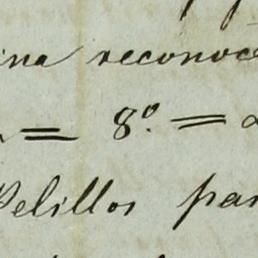 ina reconoce
= 8º. =
Pelillos par